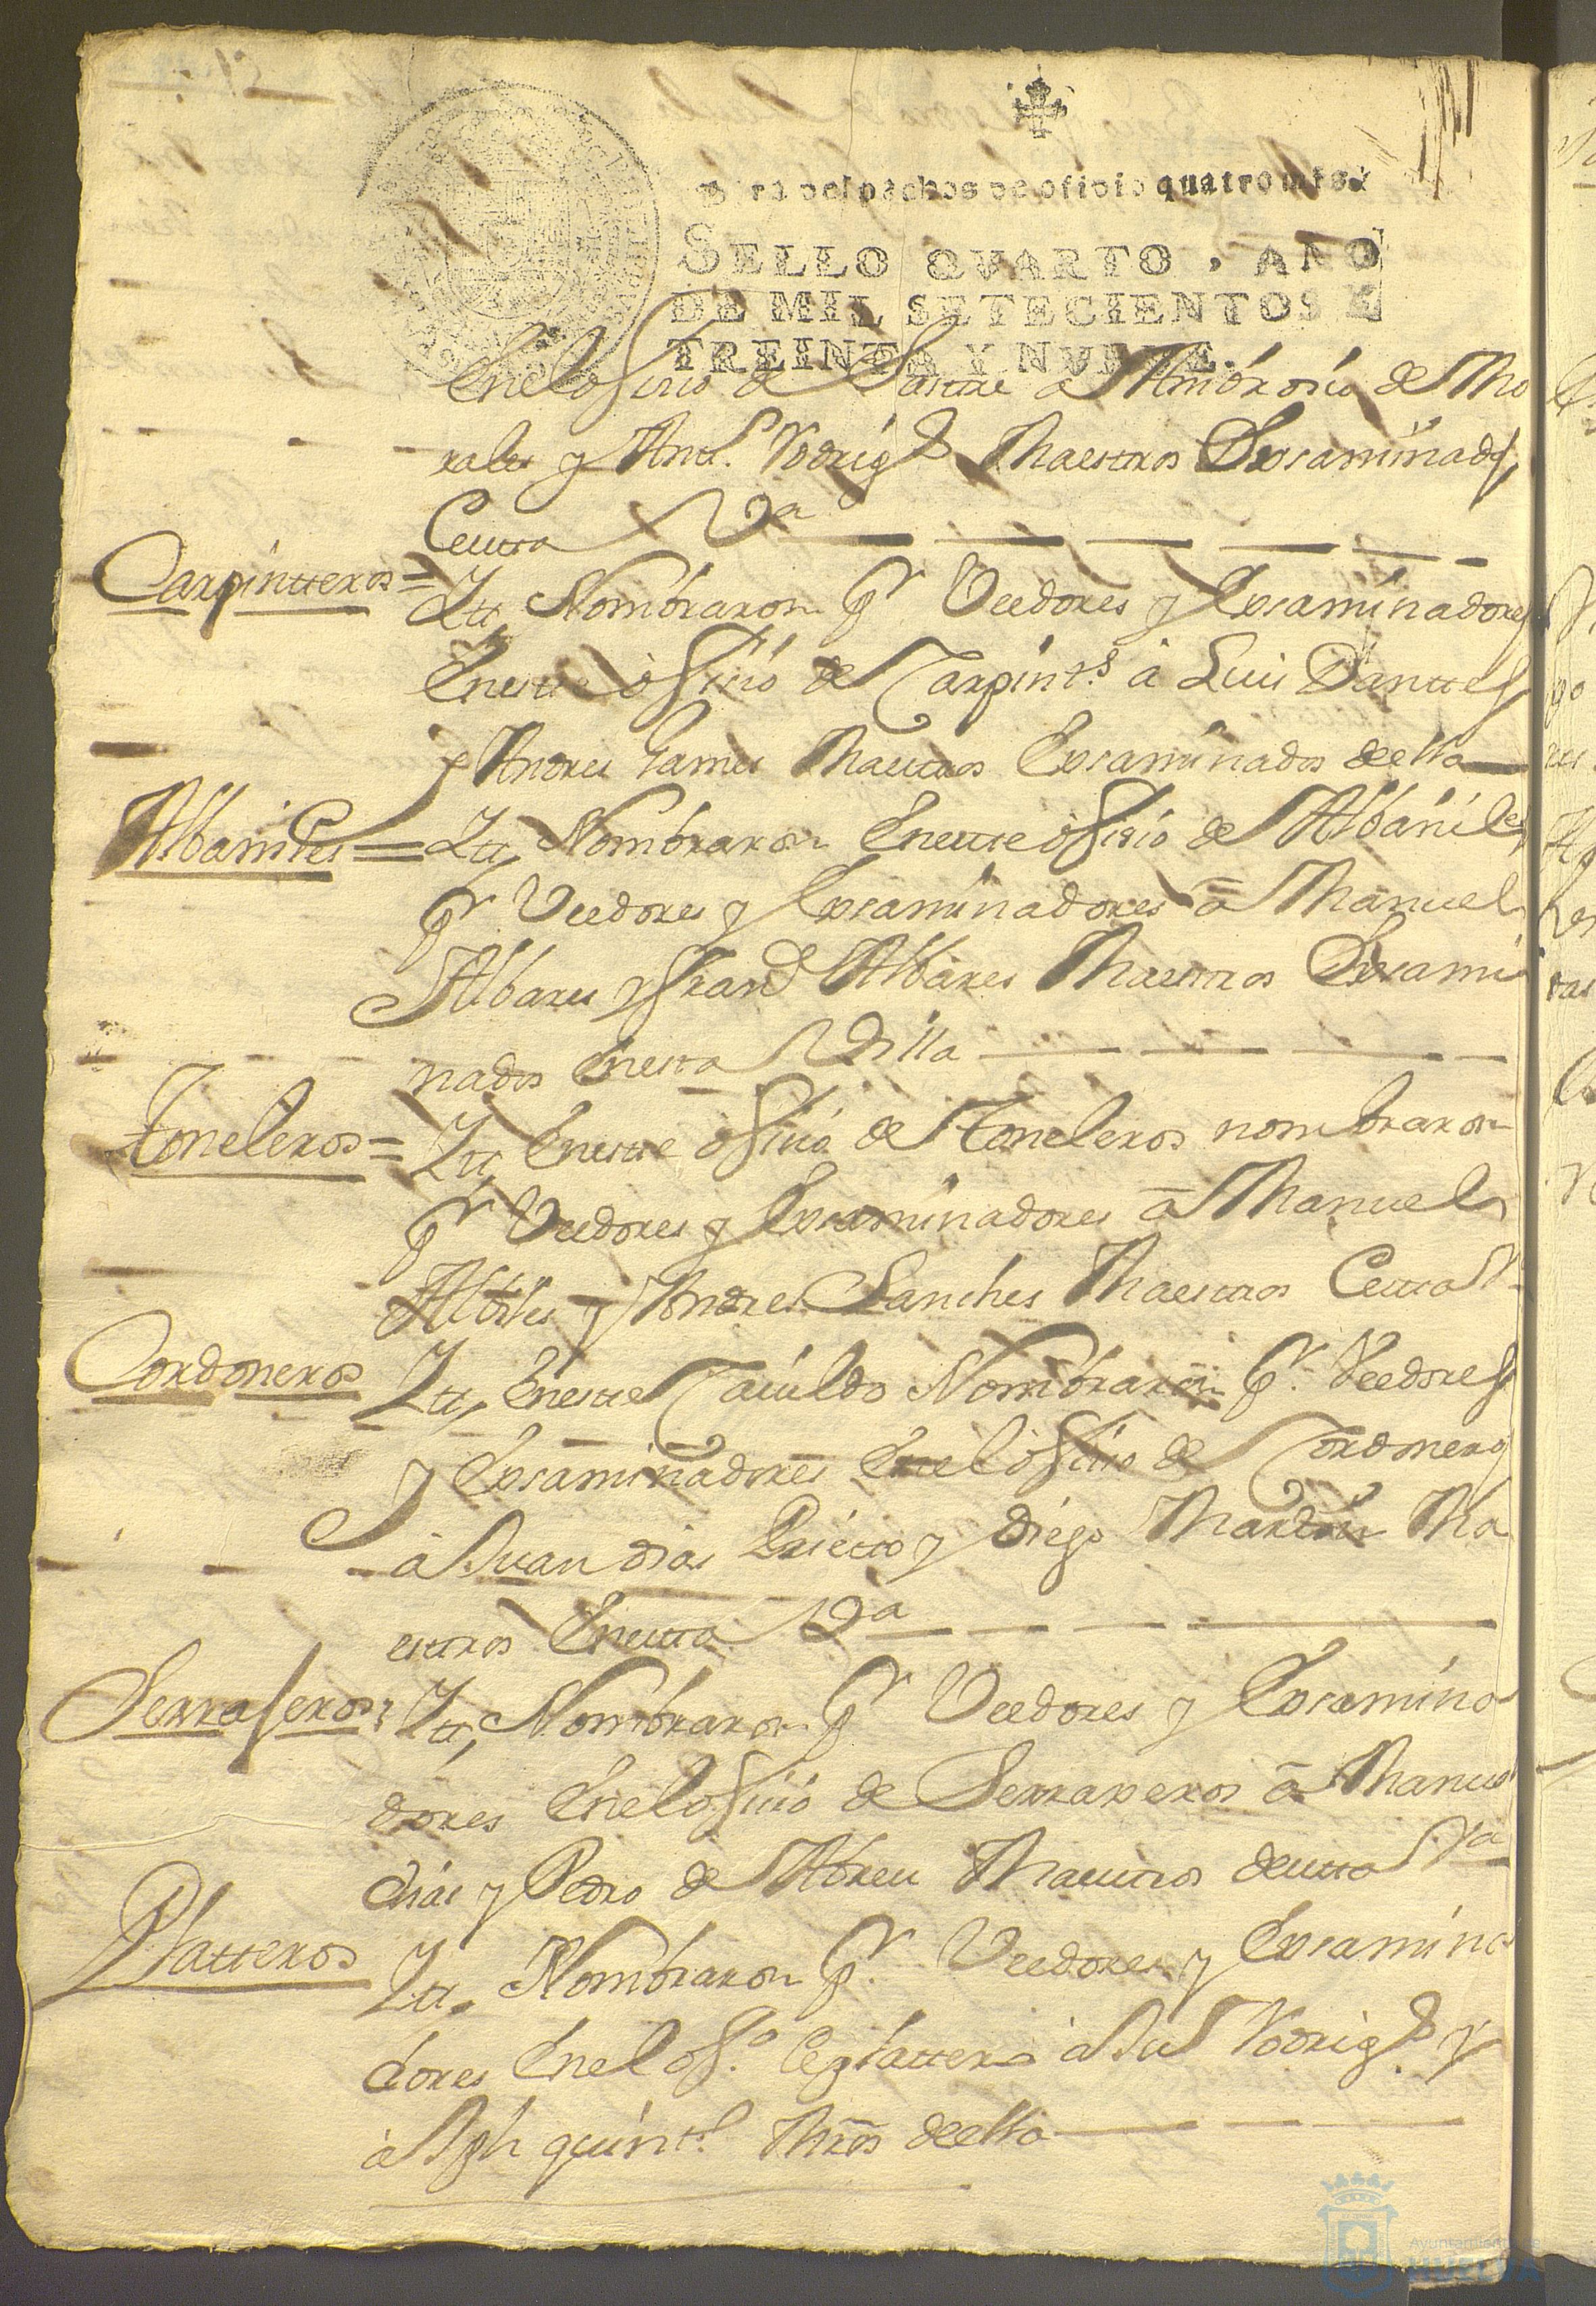 ra despachos de oficio quatro mrs.
SELLO QVARTO, AÑO
DE MIL SETECIENTOS Y
TREINTA Y NVEVE.
En el ofisio de Sastre a Ambrosio de Mo
rales y Antt.º Rodrig.s Maestros Examinads
en esta Va
Carpintteros =
Itt, Nombraron pr Veedores y Examinadores
En este ofisio de Carpint.s â Luis Dantte
y Andres Gomes Maestros Examinados de ella
Albaniles =
Itt, Nombraron En este ofisio de Albaniles
pr Veedores y Examinadores â Manuel
Albares y Fran.co Albares Maestros Exami
nados En esta Villa
Toneleros =
Itt, En este ofisio de Toneleros nombraron
pr Veedores y Examinadores â Manuel
y Andres Sanches Maestros
Cordoneros
Itt, En este Cauildo Nombraron pr. Veedores
y Examinadores En el ofisio de Cordoneros
â Juan dias Prietto y Diego Martin Ma
estros En esta Va
Serraseros
Itt, Nombraron pr Veedores y Examina
dores En el ofisio de Serraxeros â Manuel
dias y Pedro de Abreu Maestros de esta Va
Platteros
Itt, Nombraron pr. Veedores y Examina
dores En el of.º de plattero â Ju.º Rodrig.s y
â Jph quint.º Mros de ella
Ayuntamiento de
HUELVA